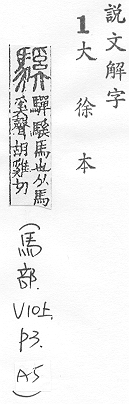 説文解字
1大徐本
騱驒騱馬也从馬
奚聲胡雞切
(馬部.V10上,P3.A5)